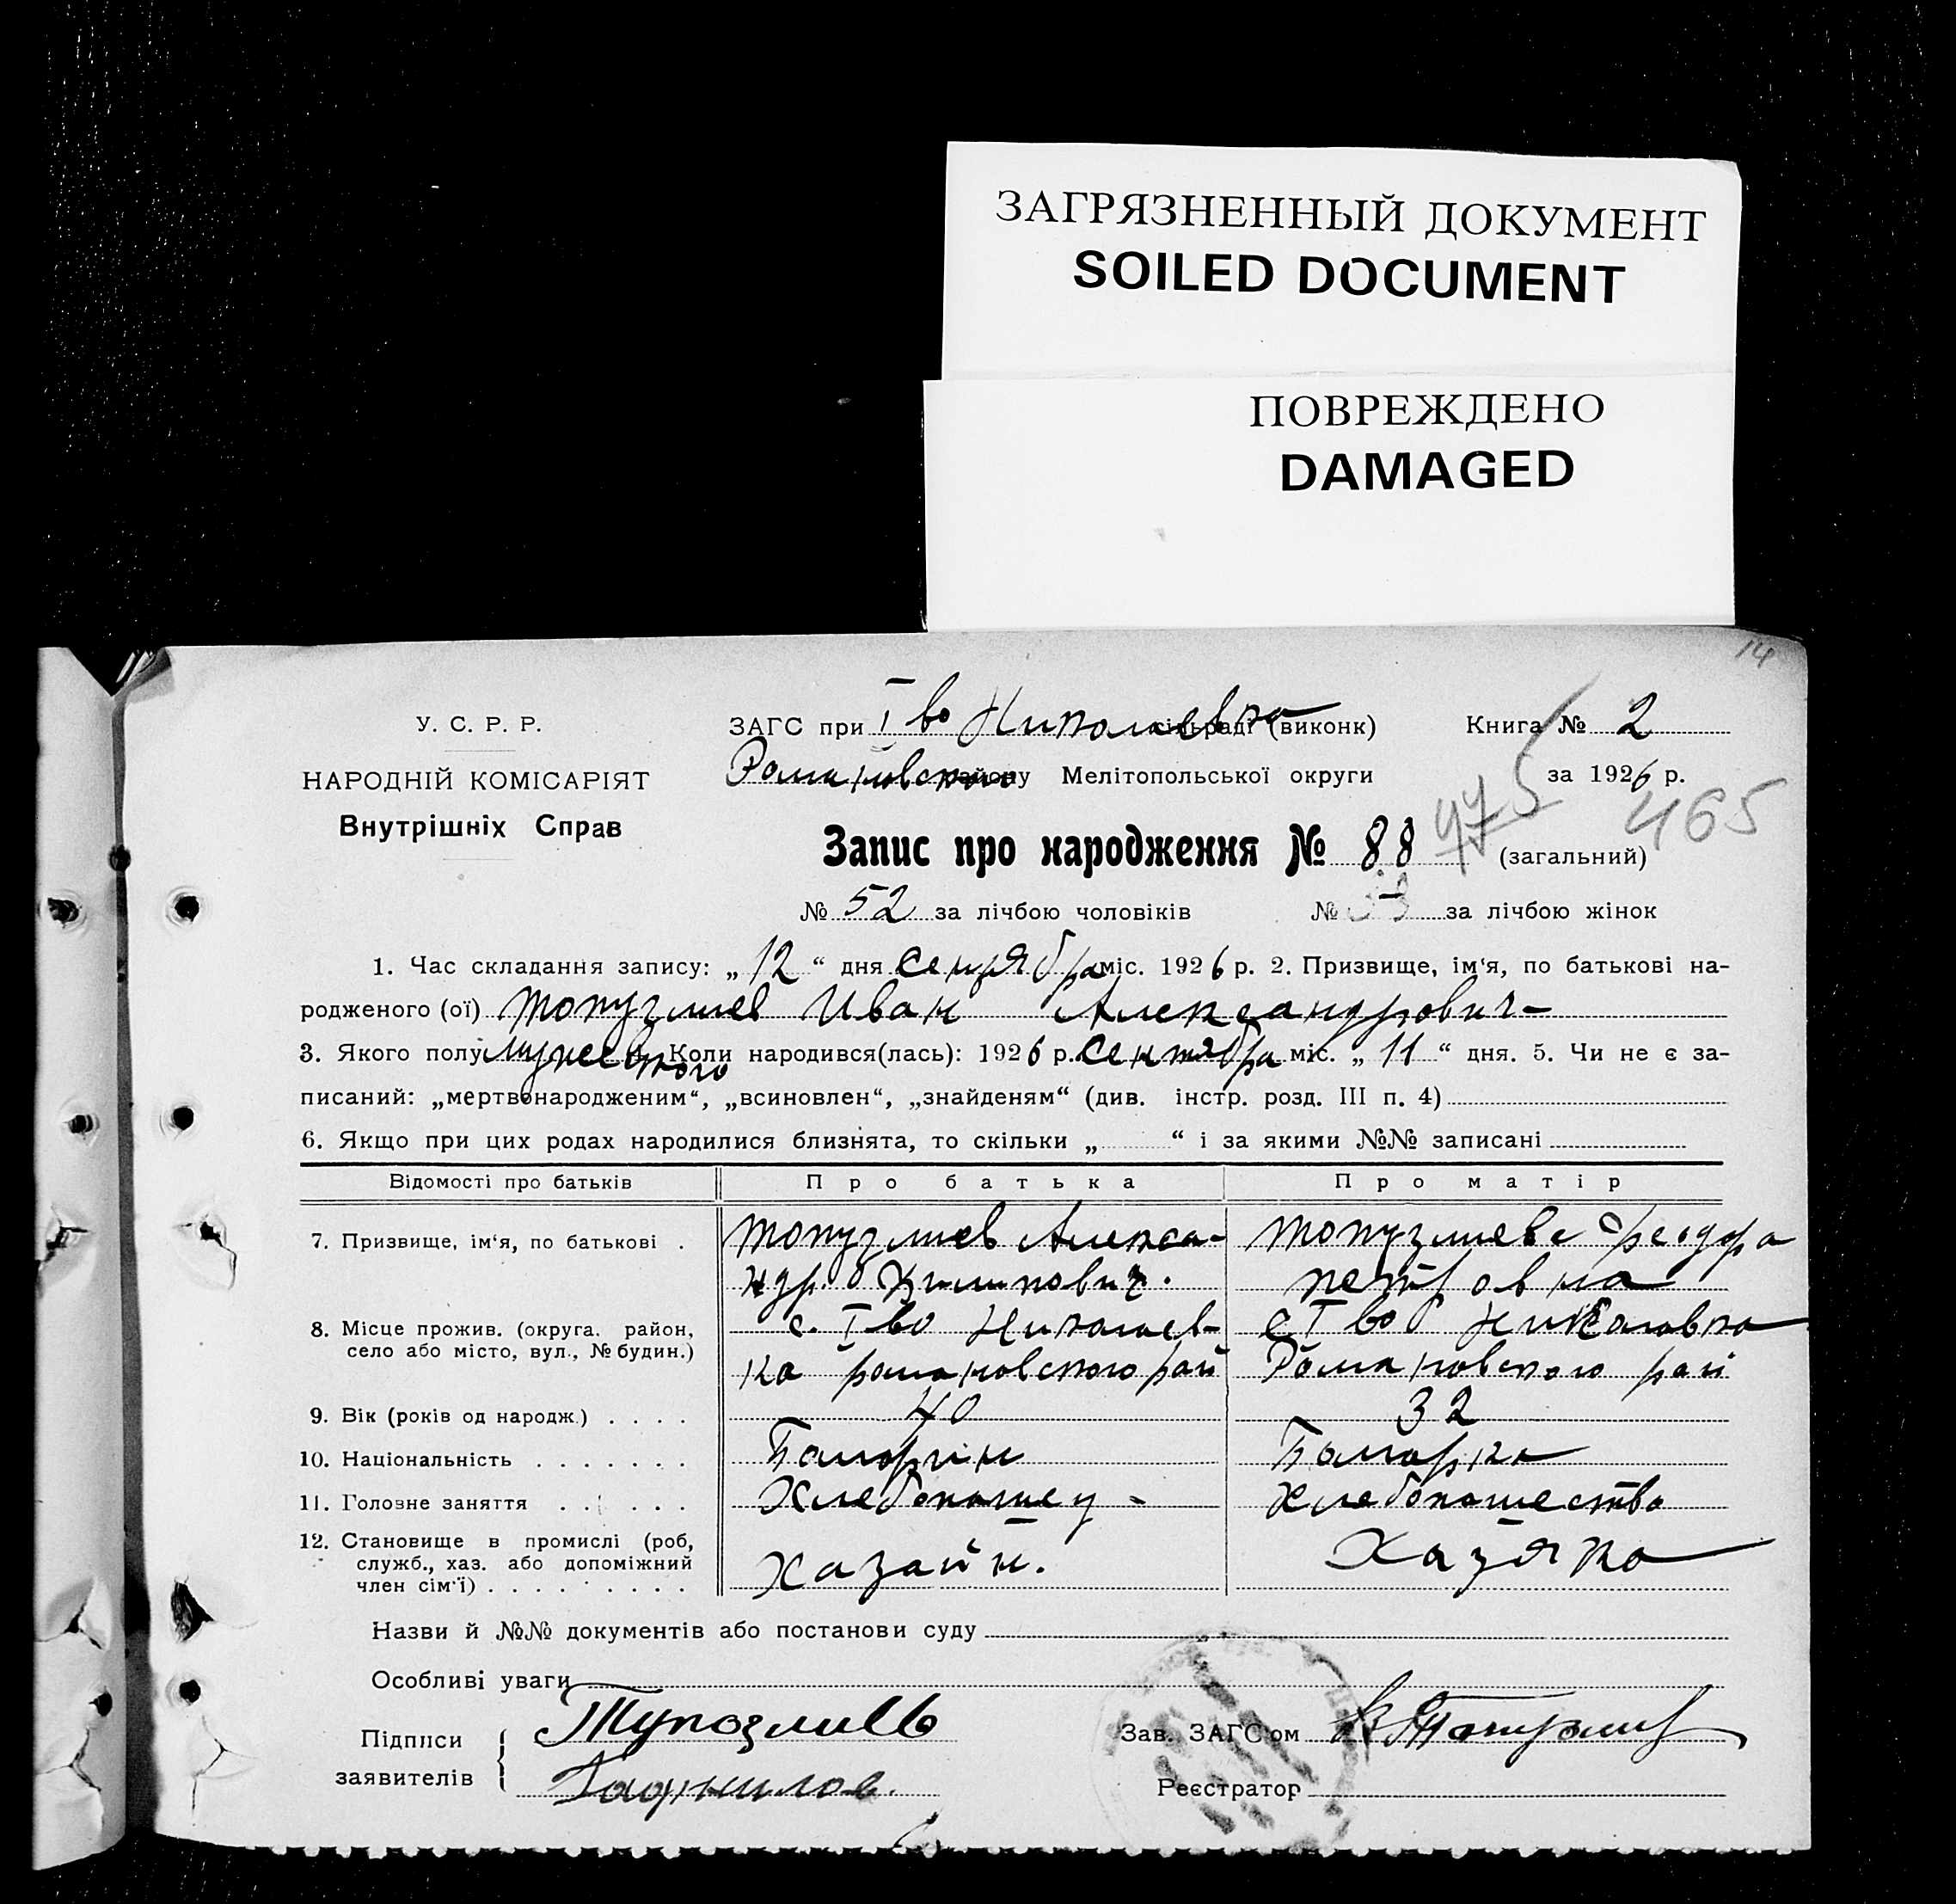 ЗАГРЯЗНЕННЫЙ ДОКУМЕНТ
SOILED DOCUMENT
ПОВРЕЖДЕНО
DAMAGED
14
У. С. Р. Р.
НАРОДНІЙ КОМІСАРІЯТ
Внутрішніх Справ
ЗАГС при I во Николаевка сільраді (виконк) Книга № 2
Романовского району Мелітопольської округи за 1926 р.
475 465
Запис про народження № 88 (загальний)
№ 52 за лічбою чоловіків № за лічбою жінок
1. Час складання запису: „ 12 “ дня сентября міс. 1926 р. 2. Призвище, ім‘я, по батькові на-
родженого (ої) Топузлиев Иван Александрович
3. Якого полу Мужеского Коли народився(лась): 1926 р. Сентября міс. „ 11 “ дня. 5. Чи не є за-
писаний: „мертвонародженим“, „всиновлен“, „знайденям“ (див. інстр. розд. III п. 4)
6. Якщо при цих родах народилися близнята, то скільки „ “ і за якими №№ записані
Відомості про батьків Про батька Про матір
7. Призвище, ім‘я, по батькові . Топузлиев Алекса- Топузлиева Феодора
ндр Петровна
8. Місце прожив. (округа, район, с. I во Николаев- с I во Николавка
село або місто, вул., № будин.) ка романовского рай Романовского рай
9. Вік (років од народж.) . . . . 40 32
10. Національність . . . . . . . Болгарин Болгарка
11. Головне заняття . . . . . Хлебопашец - Хлебопашество
12. Становище в промислі (роб,
служб., хаз. або допоміжний Хазаин. Хазяка
член сім‘ї) . . . . . . . . .
Назви й №№ документів або постанови суду
Особливі уваги
Підписи Тупозлиев Зав. ЗАГС‘ом
заявителів Реєстратор